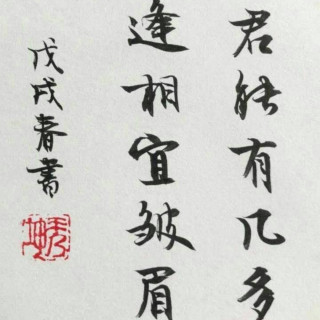 君能有几多
逢相宜皱眉
戊戌春書